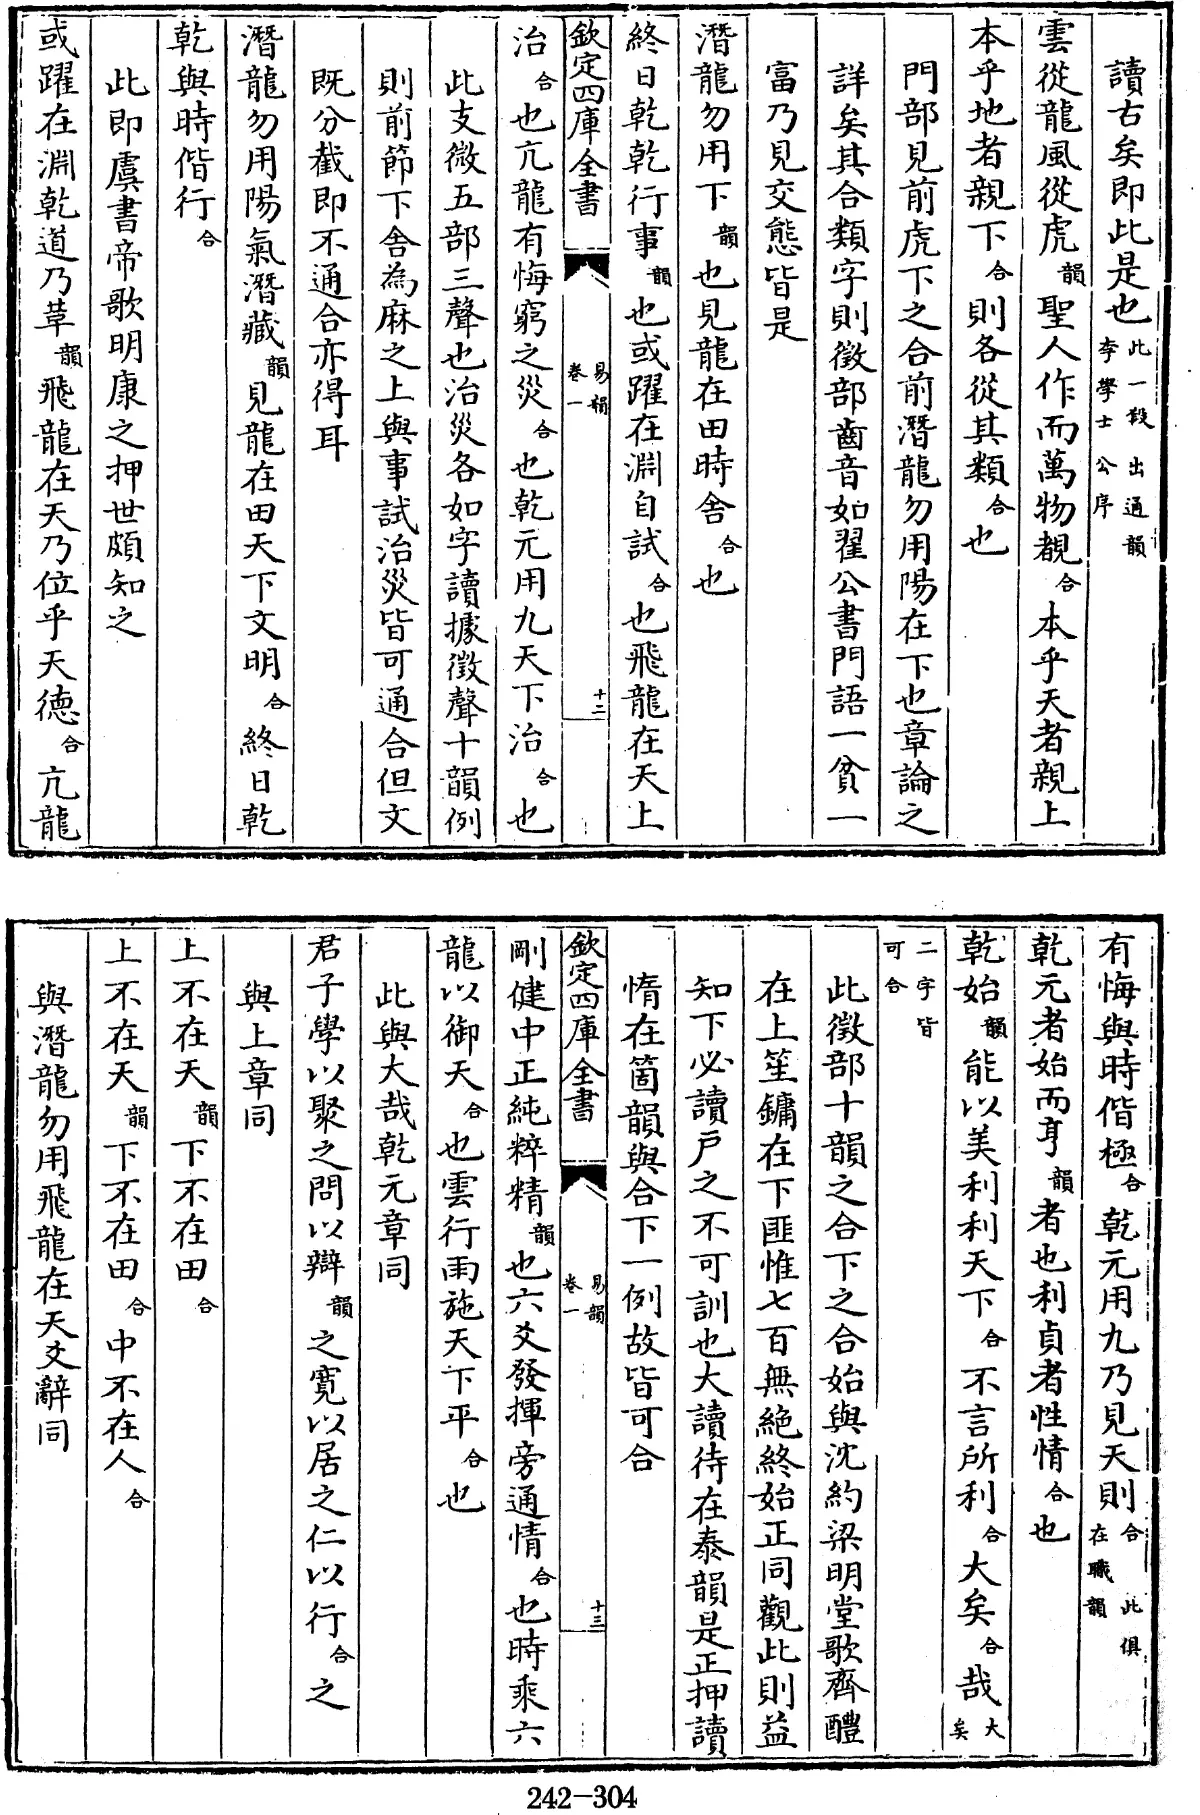 讀古矣即此是也此一段出通韻李學士公序
雲從龍風從虎韻聖人作而萬物覩合本乎天者親上
本乎地者親下合則各從其類合也
門部見前虎下之合前潛龍勿用陽在下也章論之
詳矣其合類字則徵部齒音如翟公書門語一貧一
富乃見交態皆是
潛龍勿用下韻也見龍在田時舍合也
終日乾乾行事韻也或躍在淵自試合也飛龍在天上
欽定四庫全書 易韻卷一 十二
治合也亢龍有悔窮之災合也乾元用九天下治合也
此支微五部三聲也治災各如字讀據徵聲十韻例
則前節下舍為麻之上與事試治災皆可通合但文
既分截即不通合亦得耳
潛龍勿用陽氣潛藏韻見龍在田天下文明合終日乾
乾與時偕行合
此即虞書帝歌明康之押世頗知之
或躍在淵乾道乃革韻飛龍在天乃位乎天德合亢龍
有悔與時偕極合乾元用九乃見天則合此俱在職韻
乾元者始而亨韻者也利貞者性情合也
乾始韻能以美利利天下合不言所利合大矣合哉大矣
二字皆可合
此徵部十韻之合下之合始與沈約梁明堂歌齊醴
在上笙鏞在下匪惟七百無絶終始正同觀此則益
知下必讀戸之不可訓也大讀待在泰韻是正押讀
惰在箇韻與合下一例故皆可合
欽定四庫全書 易韻卷一 十三
剛健中正純粹精韻也六爻發揮旁通情合也時乘六
龍以御天合也雲行雨施天下平合也
此與大哉乾元章同
君子學以聚之問以辯韻之寛以居之仁以行合之
與上章同
上不在天韻下不在田合
上不在天韻下不在田合中不在人合
與潛龍勿用飛龍在天爻辭同
242-304